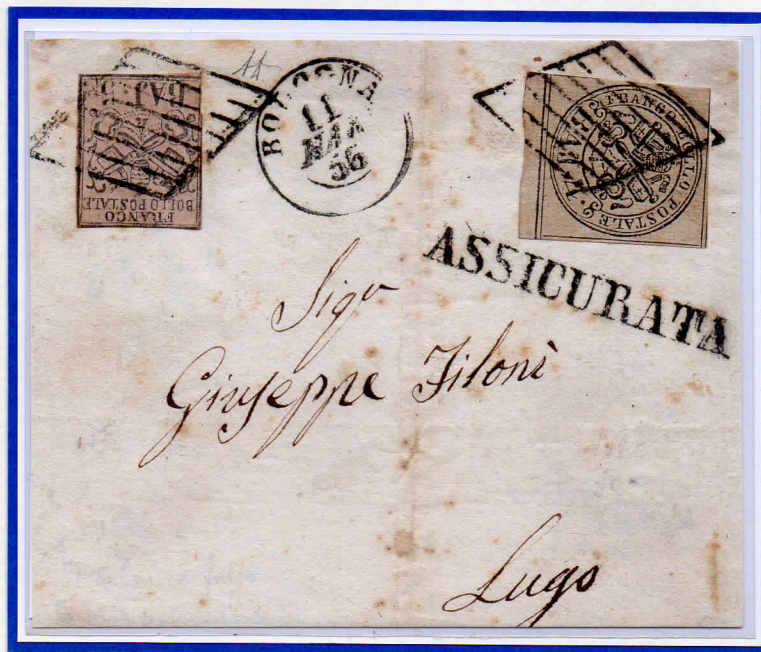 BAJ. 5
FRANCO
BOLLO POSTALE
BOLOGNA
11
MAR
56
FRANCO BOLLO POSTALE
BAJ.
ASSICURATA
Sigr
Giuseppe Filoni
Lugo